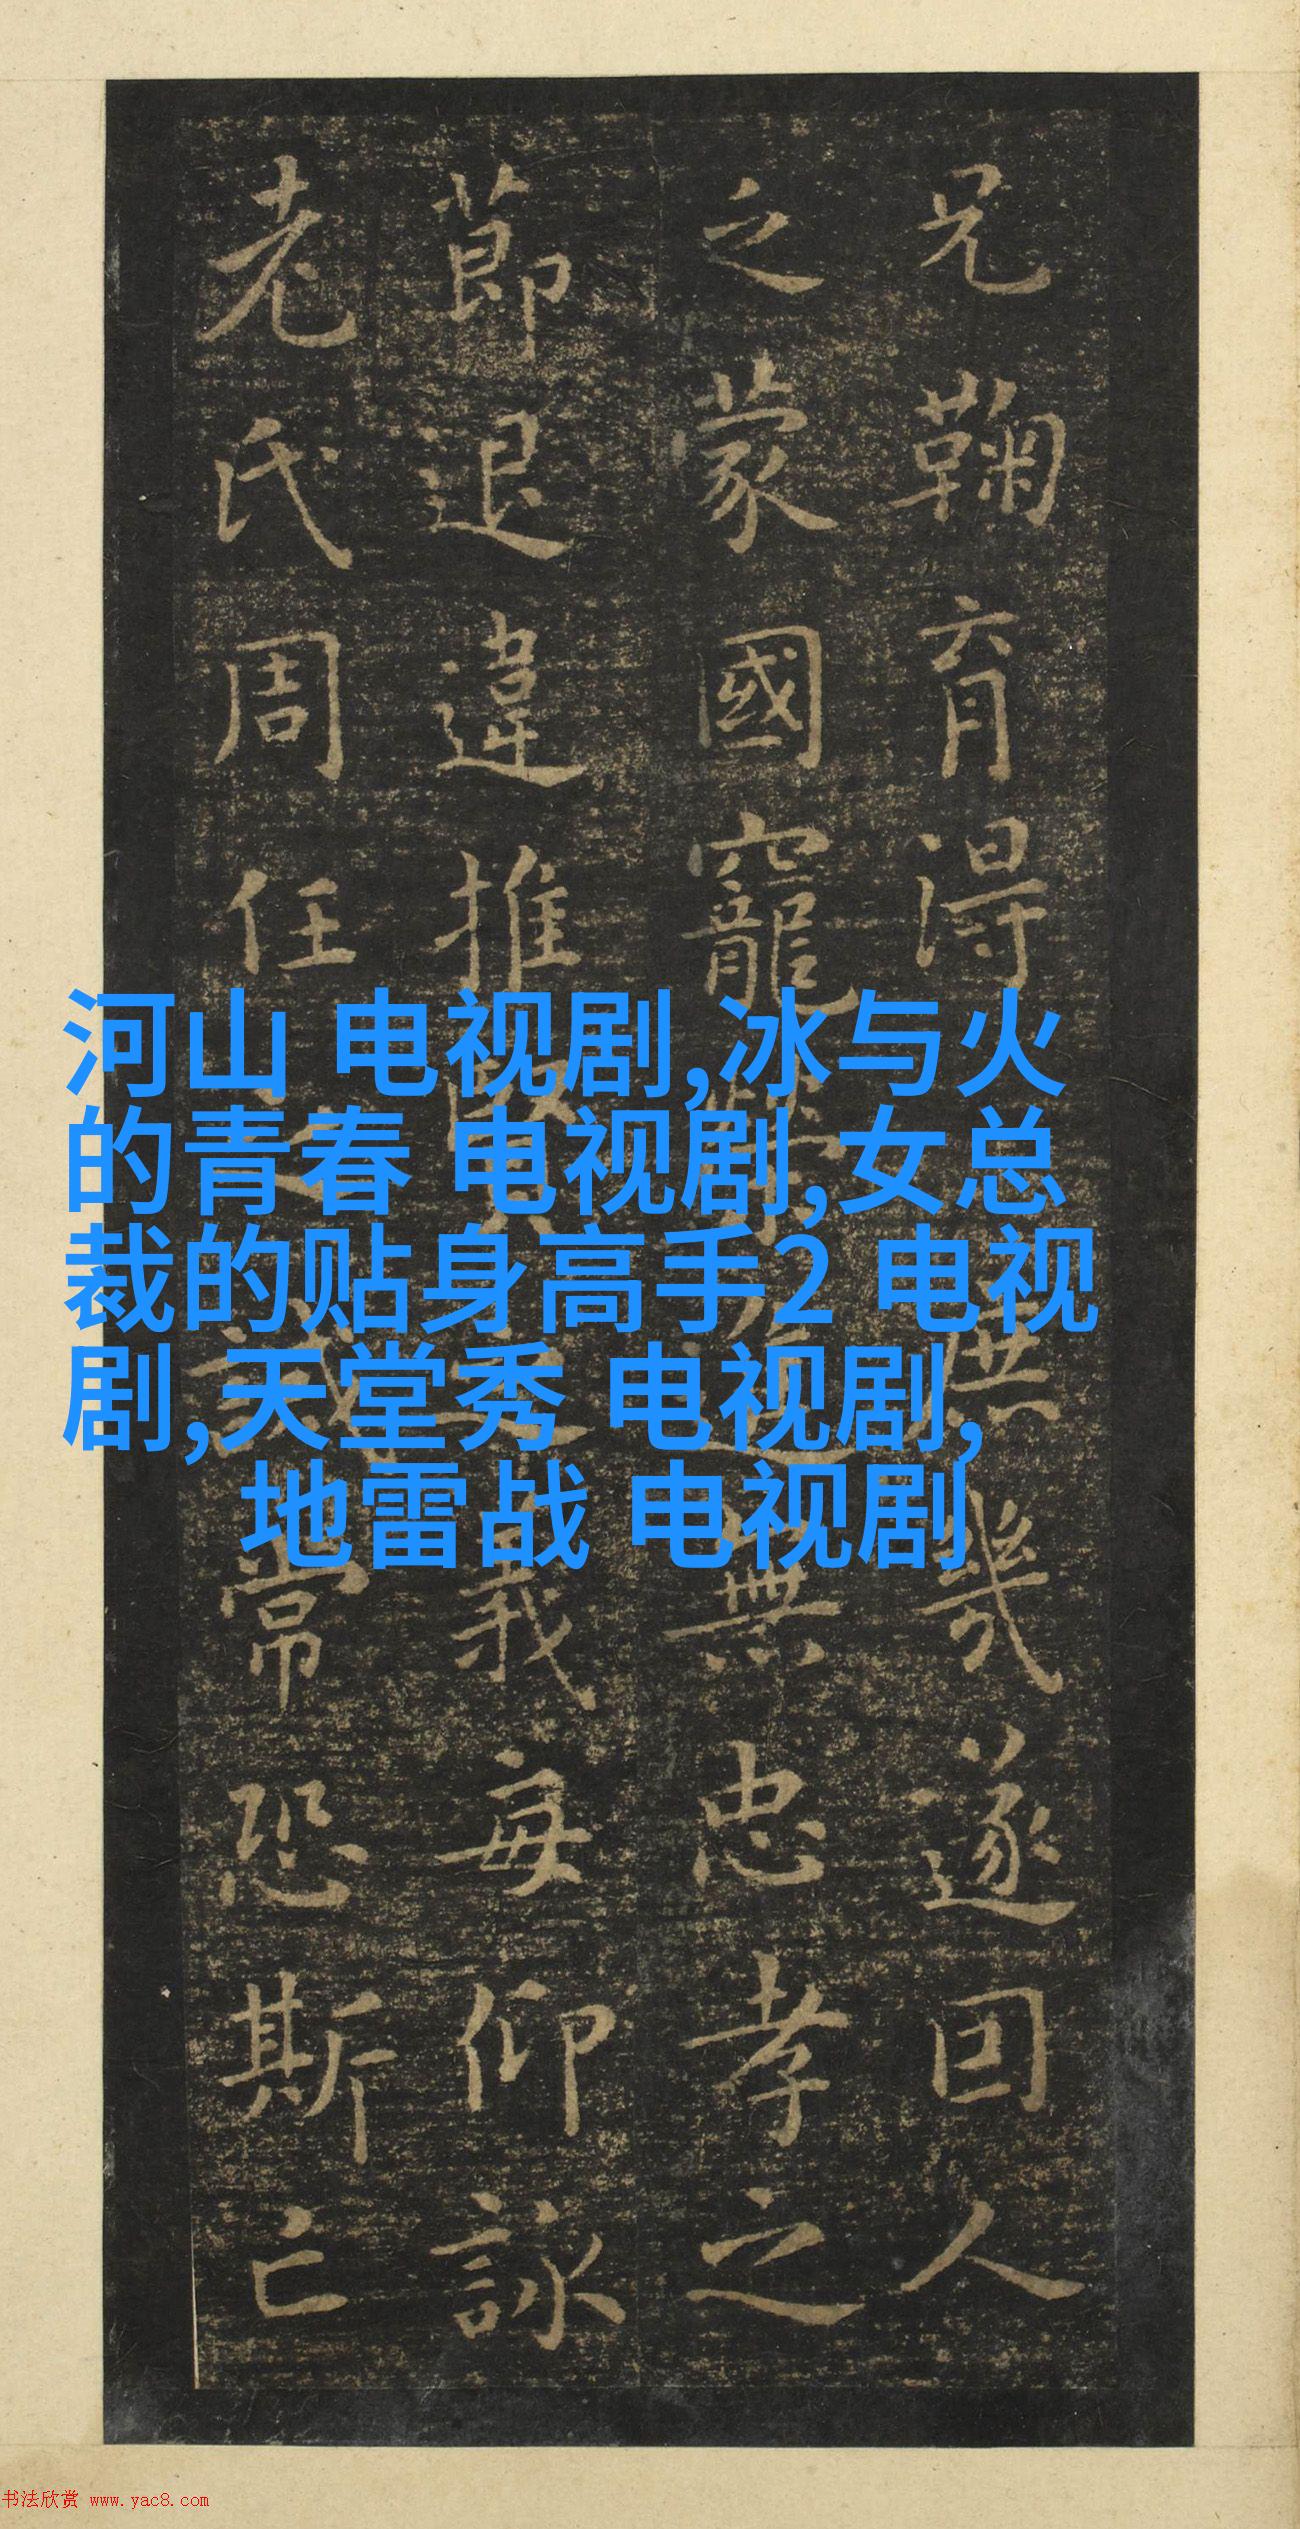 兄鞠育得庶幾遂因人
之蒙國寵榮進無忠孝之
節退違推賢之義每仰詠
老氏周任之誡常恐斯亡
河山 电视剧,冰与火
的青春 电视剧,女总
裁的贴身高手2 电视
剧,天堂秀 电视剧,
地雷战 电视剧
书法欣赏 www.yac8.com